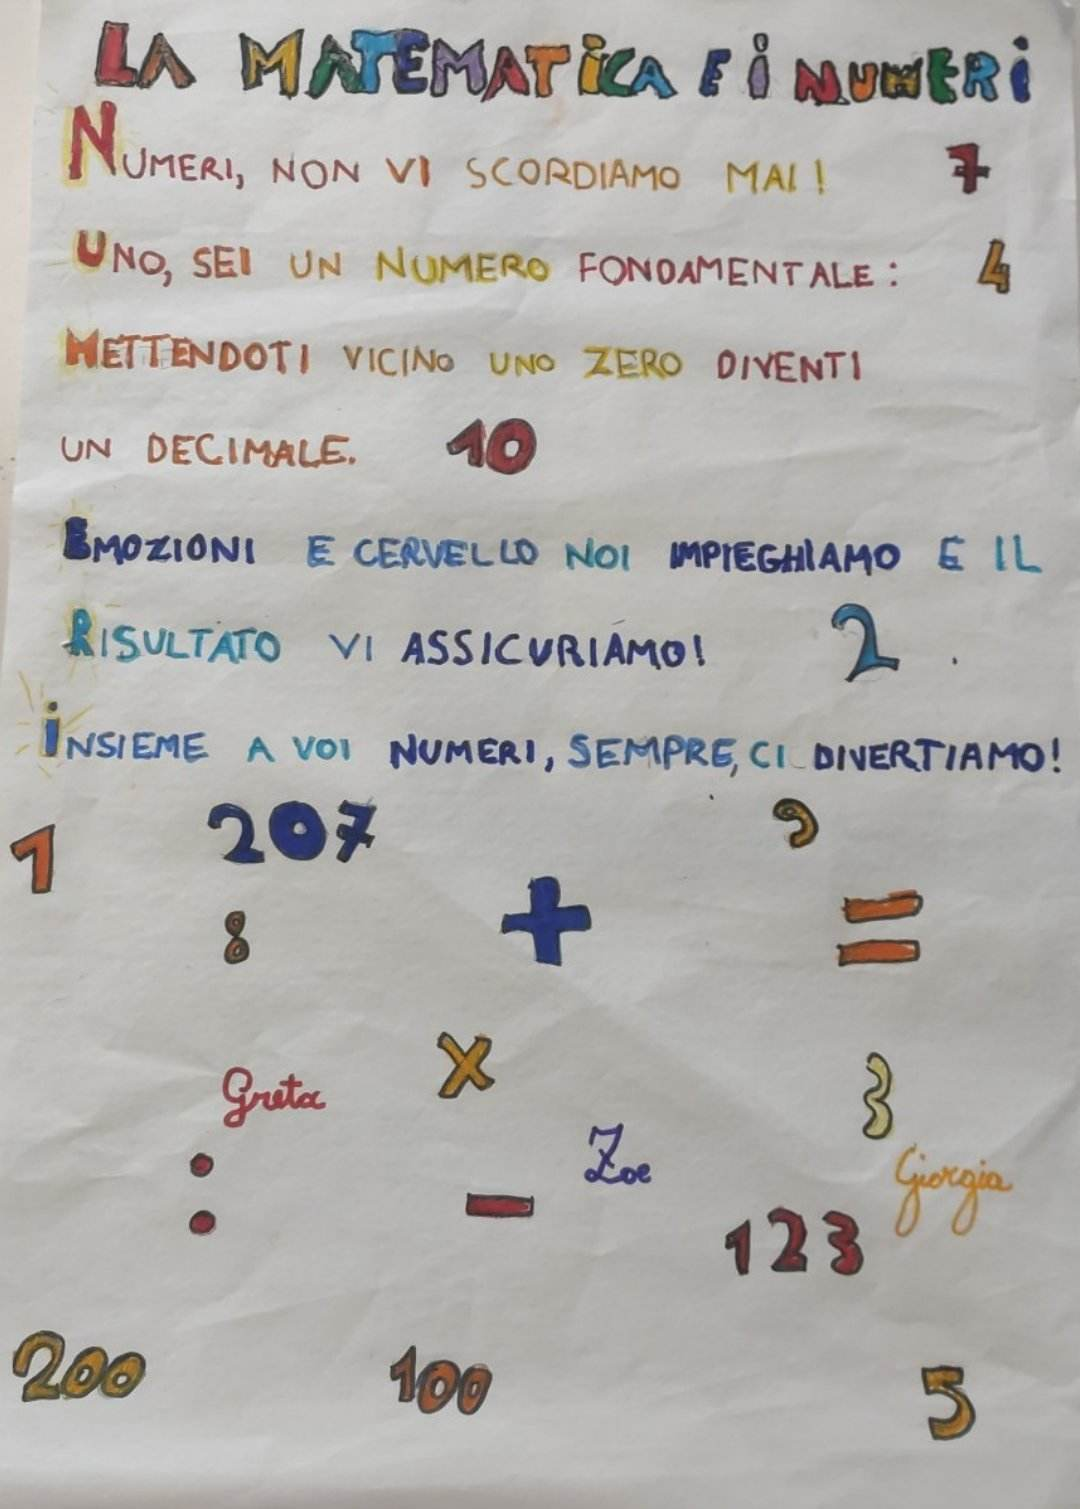 LA MATEMATICA E I NUMERI
NUMERI, NON VI SCORDIAMO MAI! 7
UNO, SEI UN NUMERO FONDAMENTALE: 4
METTENDOTI VICINO UNO ZERO DIVENTI
UN DECIMALE. 10
EMOZIONI E CERVELLO NOI IMPIEGHIAMO E IL
RISULTATO VI ASSICURIAMO! 2
INSIEME A VOI NUMERI, SEMPRE, CI DIVERTIAMO!
1 207 9
8 + =
Greta x 3
: - Zoe Giorgia
123
200 100 5